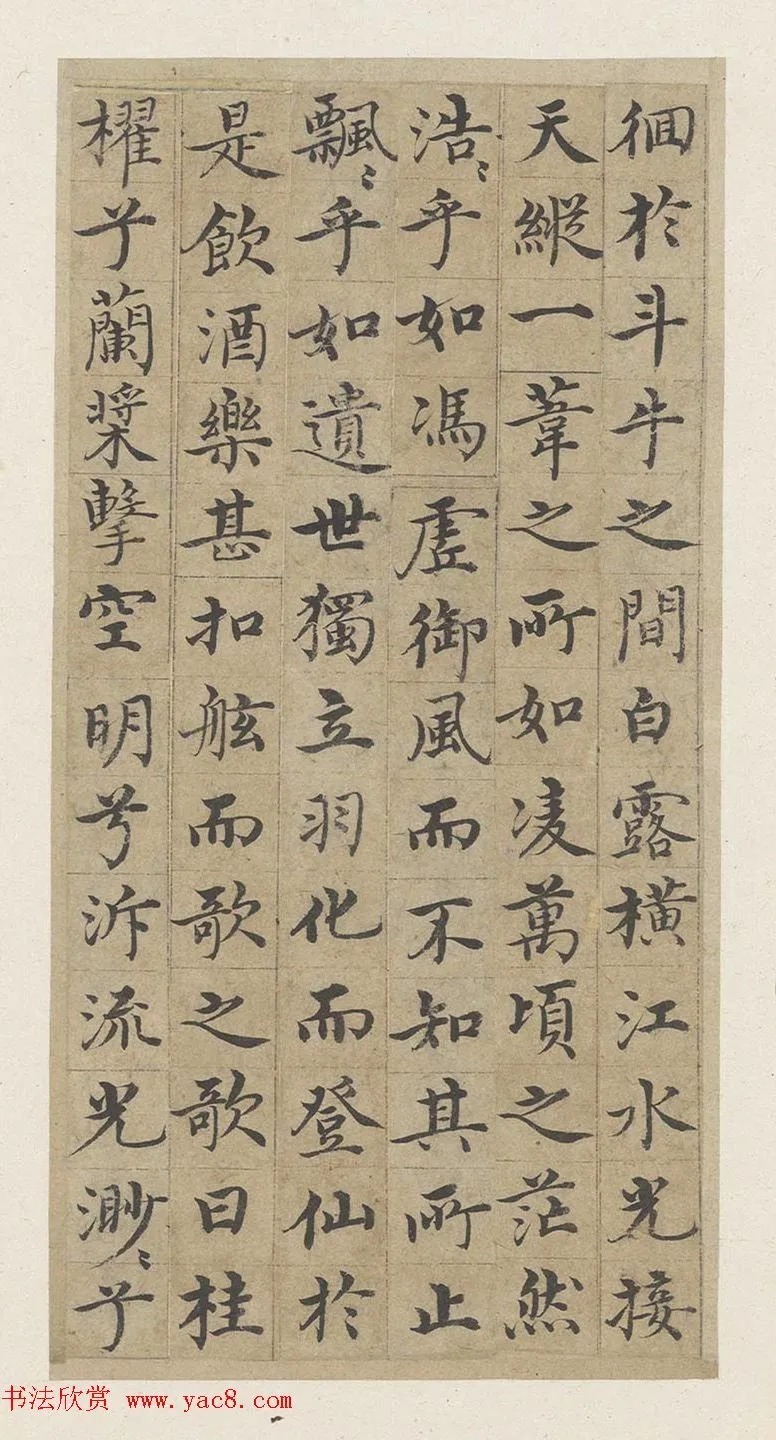 徊於斗牛之間白露橫江水光接
天縱一葦之所如凌萬頃之茫然
浩〻乎如馮虛御風而不知其所止
飄〻乎如遺世獨立羽化而登仙於
是飲酒樂甚扣舷而歌之歌曰桂
櫂兮蘭槳擊空明兮泝流光渺〻兮
书法欣赏 www.yac8.com